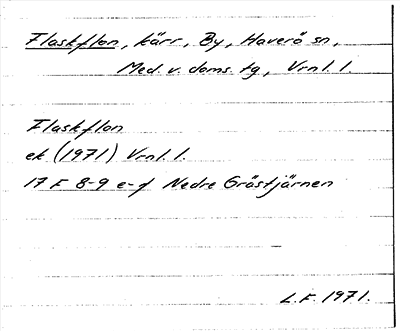 Flaskflon, kärr, By, Haverö sn,
Med. v. doms. tg, Vrml. l.
Flaskflon
ek (1971) Vrml. l.
17 F 8-9 e-f Nedre Gråstjärnen
L.F. 1971.